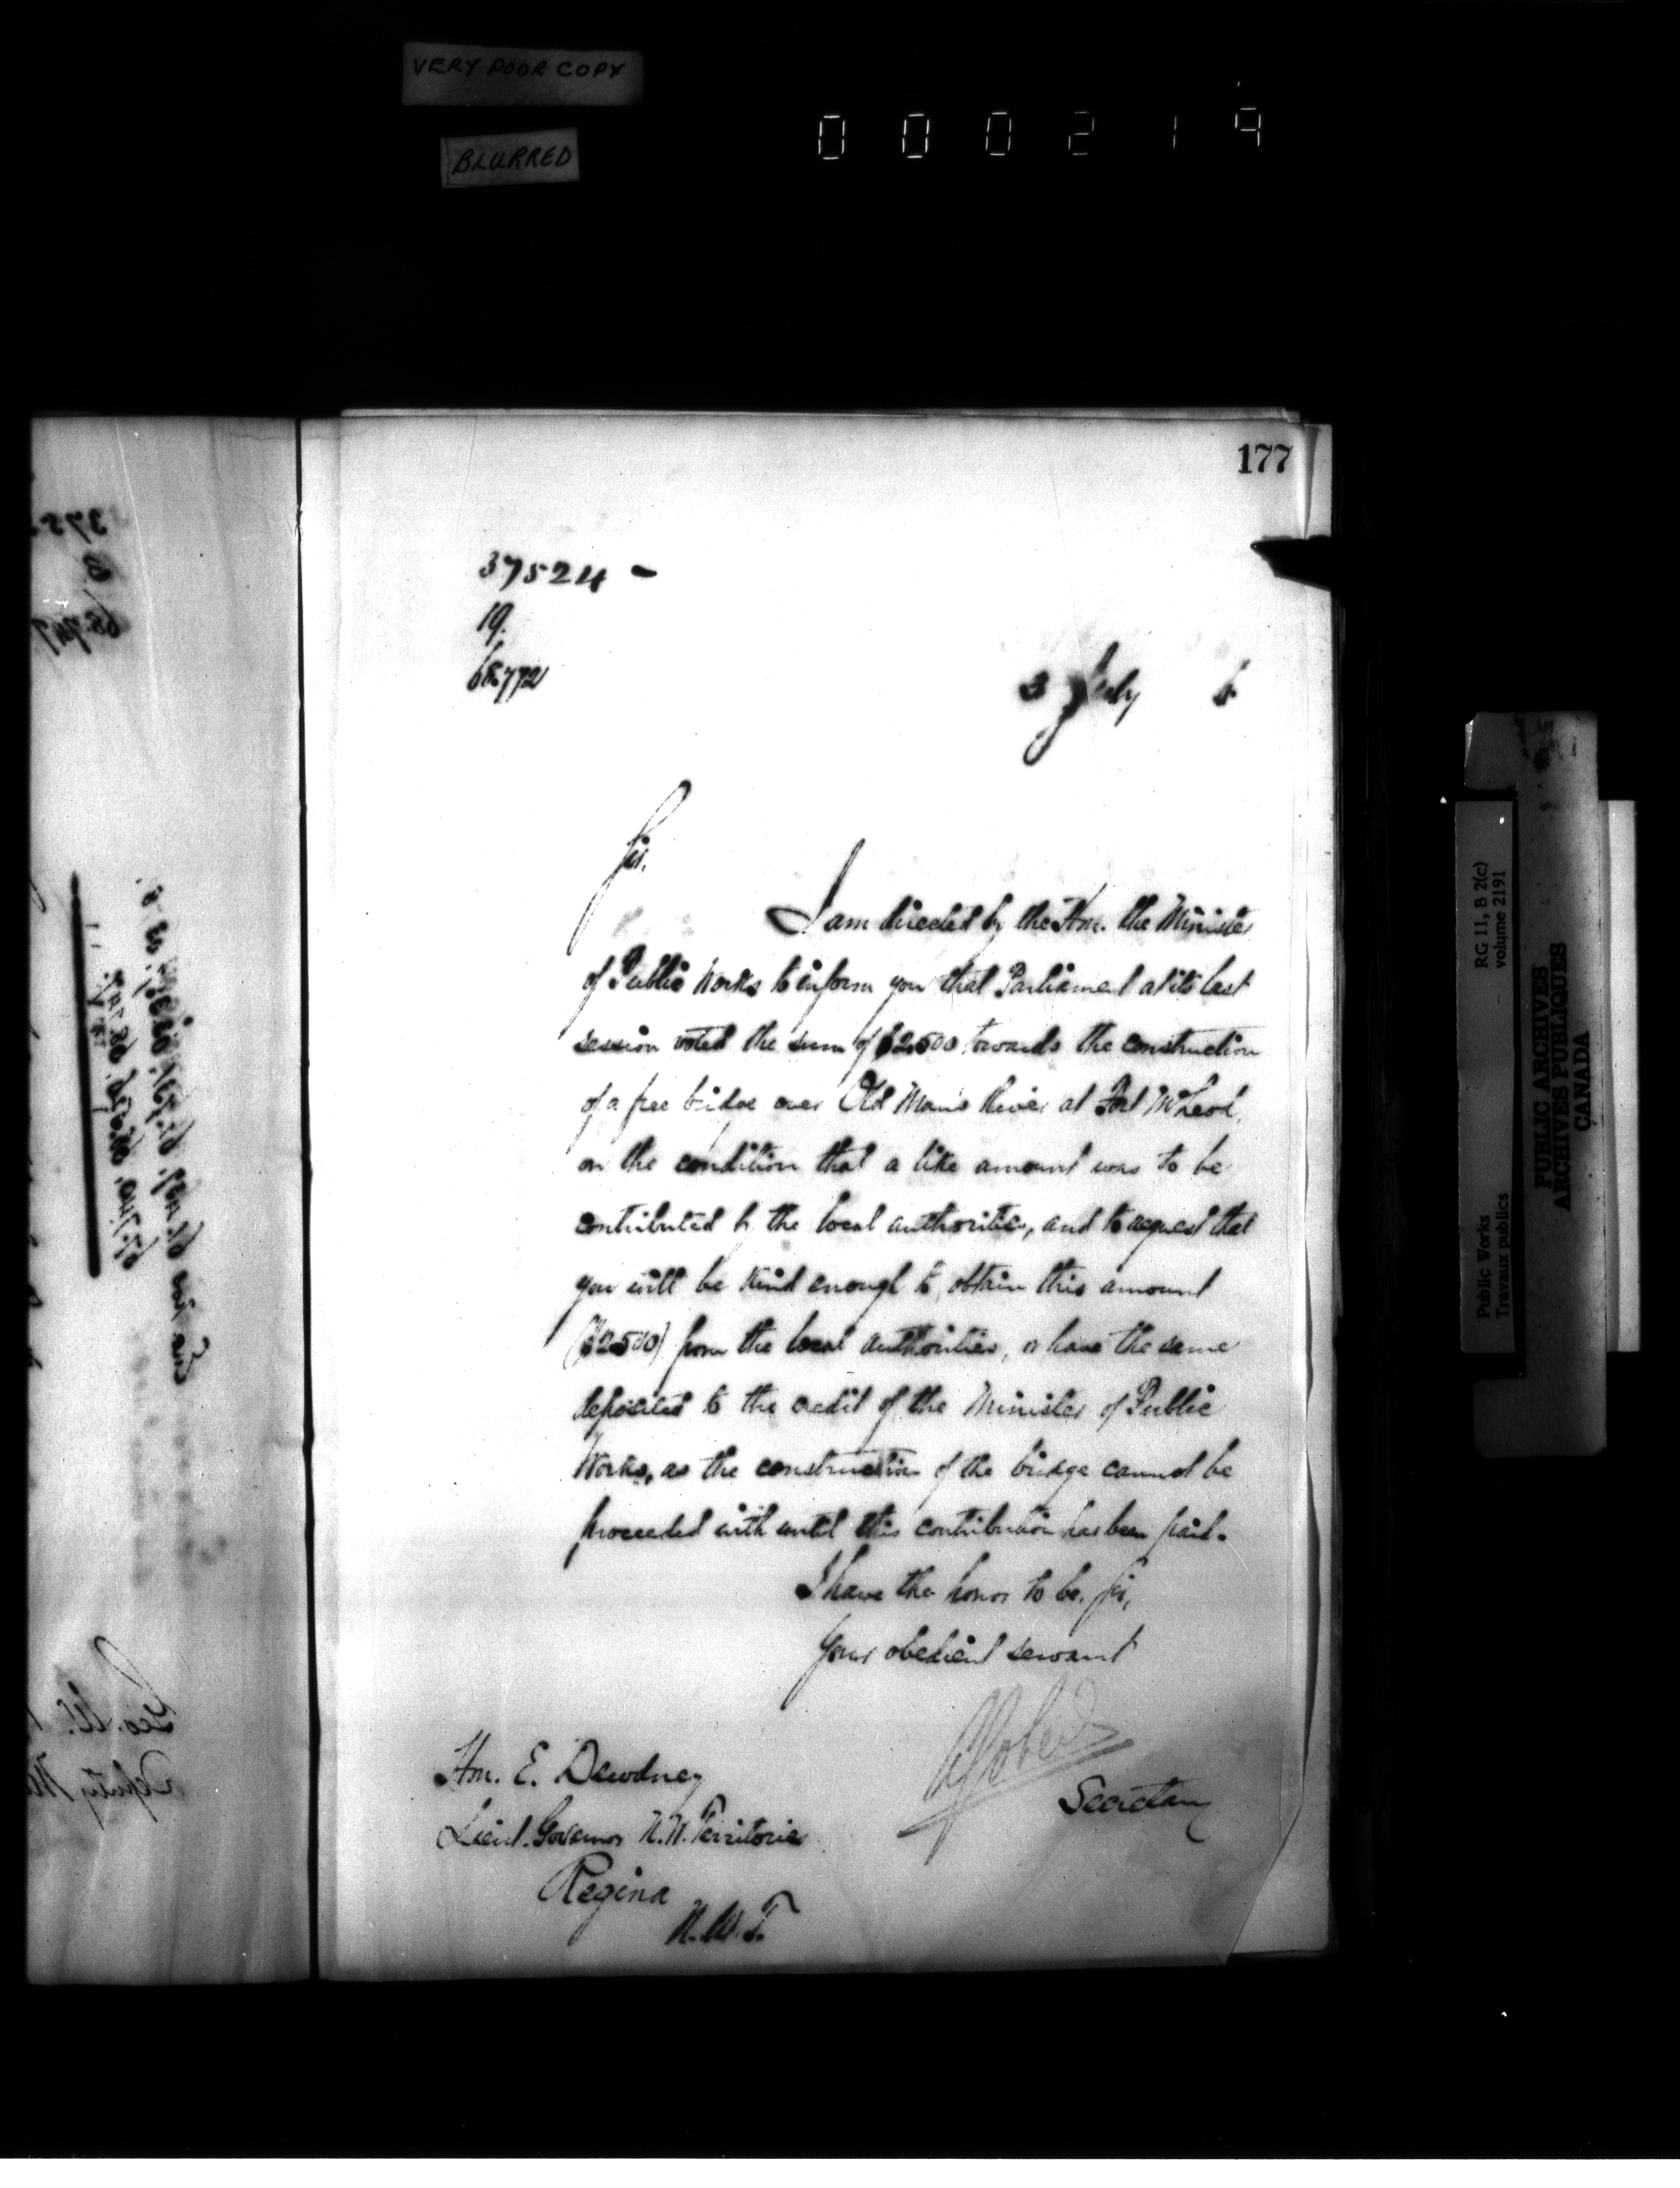 VERY POOR COPY
BLURRED
000219
177
37524 -
19.
68.772
3 July 6
Sir.
I am directed by the Hon. the Minister
of Public Works to inform you that Parliament at its last
session voted the sum of $2500 towards the construction
of a free bridge over Old Man's River at Fort McLeod,
on the condition that a like amount was to be
contributed by the local authorities, and to request that
you will be kind enough to obtain this amount
($2500) from the local authorities, or have the same
deposited to the credit of the Minister of Public
Works, as the construction of the bridge cannot be
proceeded with until this contribution has been paid.
I have the honor to be, Sir,
Your obedient servant
Secretary
Hon. E. Dewdney
Lieut. Governor N.W. Territories
Regina
N.W.T.
RG 11, B 2(c)
volume 2191
Public Works
Travaux publics
PUBLIC ARCHIVES
ARCHIVES PUBLIQUES
CANADA